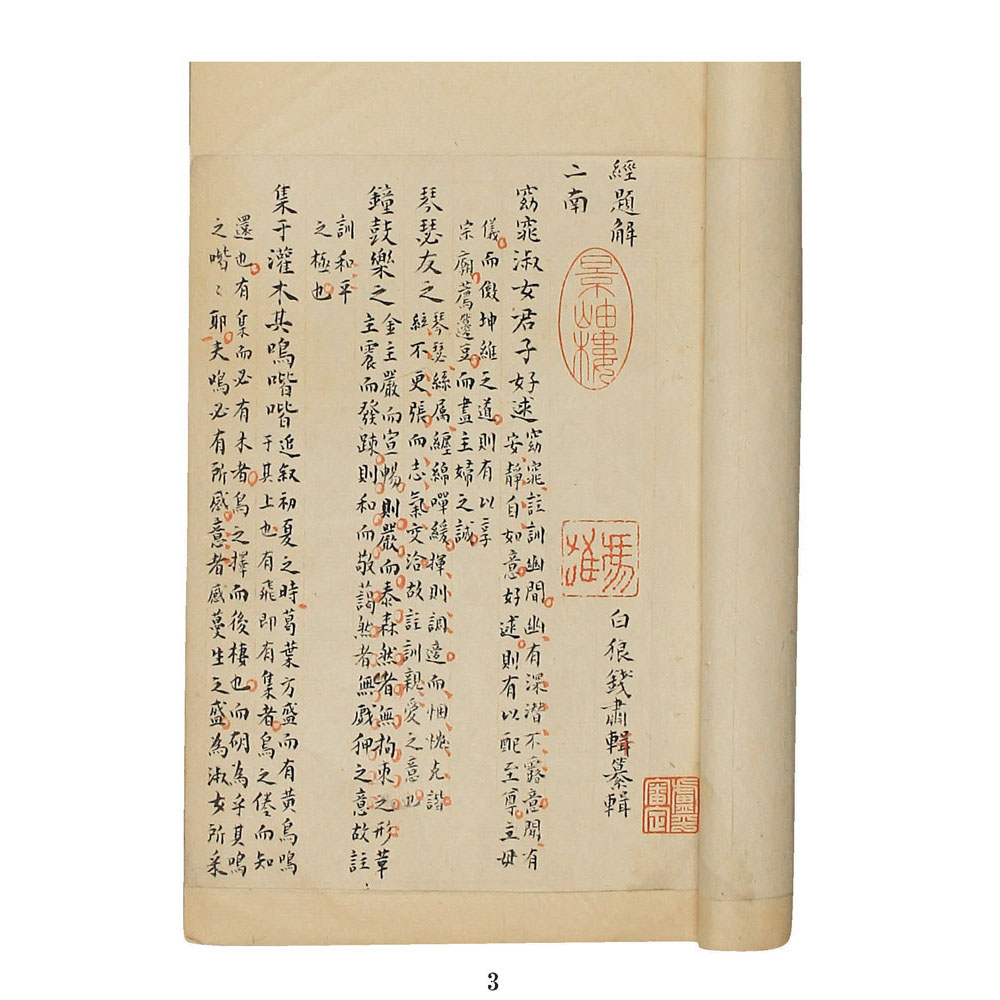 經題解
白狼錢肅輯纂輯
二南
景岫樓
窈窕淑女君子好逑
窈窕註訓幽閒幽有深潛不露意閒有
安靜自如意好逑則有以配至尊主毋
儀而儆坤維之道則有以孚
宗廟薦籩豆而盡主婦之誠
琴瑟友之
琴瑟絲属纏綿嘽緩揮則調適而悃愊克諧
絃不更張而志氣交洽故註訓親愛之意也
鐘鼓樂之
金主嚴而宣暢則嚴而泰森然者無拘束之形革
主震而發踈則和而敬藹然者無戲狎之意故註
訓和平
之極也
集于灌木其鳴喈喈
近叙初夏之時葛葉方盛而有黃鳥鳴
于其上也有飛即有集者鳥之倦而知
還也有集而必有木者鳥之擇而後棲也而胡為乎其鳴
之喈〻耶夫鳴必有所感意者感蔓生之盛為淑女所采
3